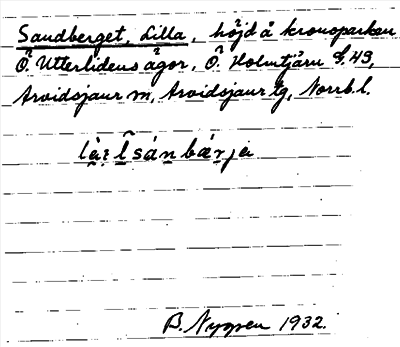 Sandberget, Lilla, höjd å kronoparken
Ö. Utterlidens ägor, Ö. Holmtjärn S.49,
Arvidsjaur sn, Arvidsjaur tg, Norrb. l.
B. Nygren 1932.